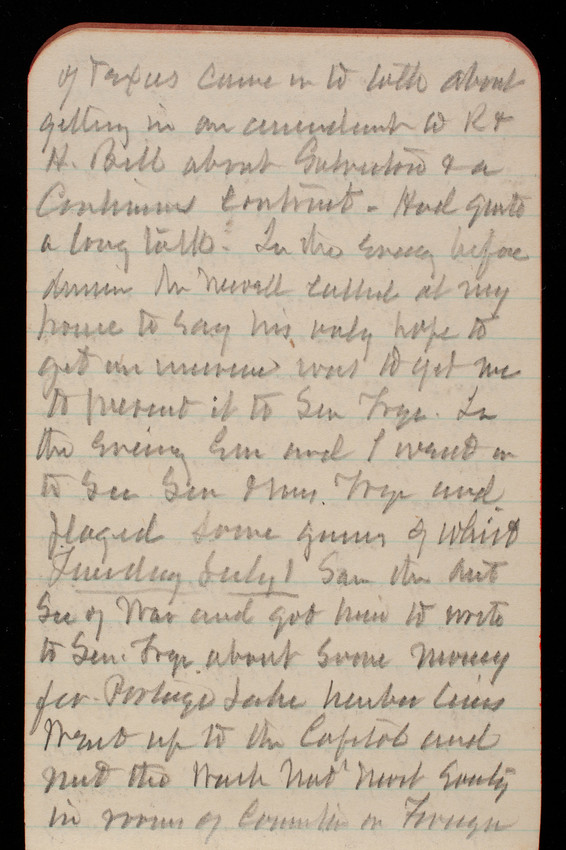 of Texas came in to talk about
getting in an amendment to R &
H. Bill about Galveston & a
Continuous Contract - Had quite
a long talk. In the evening before
dinner Mr Newell called at my
house to say his only hope to
get an increase was to get me
to present it to Sen Frye. In
the evening Em and I went in
to see Sen & Mrs. Frye and
played some games of Whist
Tuesday July 1 Saw the Act
Sec of War and got him to write
to Sen. Frye about some money
for Portage Lake harbor lines
Went up to the Capitol and
met the Wash Nat Mont Society
in rooms of Committee on Foreign